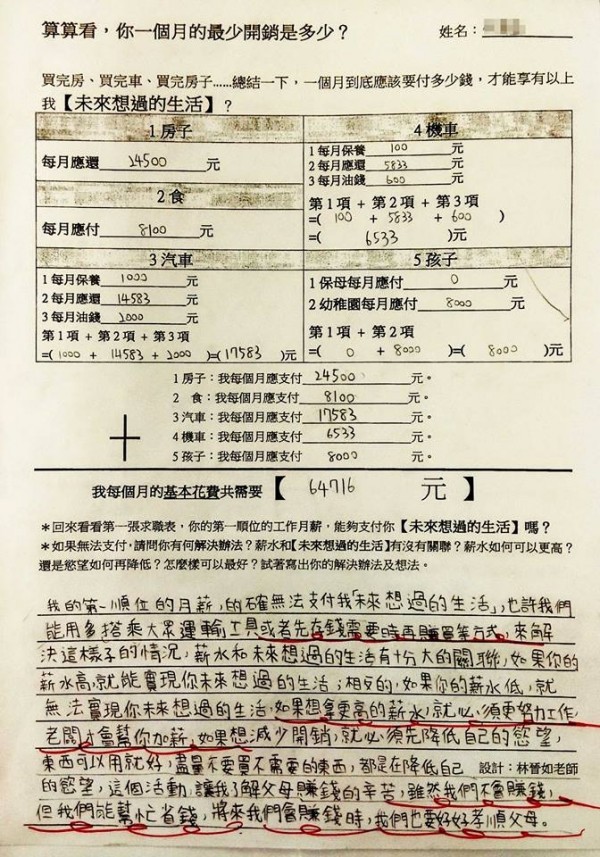 算算看，你一個月的最少開銷是多少？
姓名：
買完房、買完車、買完房子……總結一下，一個月到底應該要付多少錢，才能享有以上
我【未來想過的生活】？
1 房子
每月應還 24500 元
2 食
每月應付 8100 元
3 汽車
1 每月保養 1000 元
2 每月應還 14583 元
3 每月油錢 2000 元
第 1 項 + 第 2 項 + 第 3 項
=( 1000 + 14583 + 2000 )=( 17583 )元
4 機車
1 每月保養 100 元
2 每月應還 5833 元
3 每月油錢 600 元
第 1 項 + 第 2 項 + 第 3 項
=( 100 + 5833 + 600 )
=( 6533 )元
5 孩子
1 保母每月應付 0 元
2 幼稚園每月應付 8000 元
第 1 項 + 第 2 項
=( 0 + 8000 )=( 8000 )元
1 房子：我每個月應支付 24500 元。
2 食：我每個月應支付 8100 元。
3 汽車：我每個月應支付 17583 元。
4 機車：我每個月應支付 6533 元。
5 孩子：我每個月應支付 8000 元。
+
我每個月的基本花費共需要【 64716 元 】
＊回來看看第一張求職表，你的第一順位的工作月薪，能夠支付你【未來想過的生活】嗎？
＊如果無法支付，請問你有何解決辦法？薪水和【未來想過的生活】有沒有關聯？薪水如何可以更高？
還是慾望如何再降低？怎麼樣可以最好？試著寫出你的解決辦法及想法。
我的第一順位的月薪，的確無法支付我「未來想過的生活」，也許我們
能用多搭乘大眾運輸工具或者先存錢需要時再購買等方式，來解
決這樣子的情況，薪水和未來想過的生活有十分大的關聯，如果你的
薪水高，就能實現你未來想過的生活；相反的，如果你的薪水低，就
無法實現你未來想過的生活，如果想拿更高的薪水，就必須更努力工作，
老闆才會幫你加薪，如果想減少開銷，就必須先降低自己的慾望，
東西可以用就好，盡量不要買不需要的東西，都是在降低自己
設計：林晉如老師
的慾望，這個活動，讓我了解父母賺錢的辛苦，雖然我們不會賺錢，
但我們能幫忙省錢，將來我們會賺錢時，我們也要好好孝順父母。